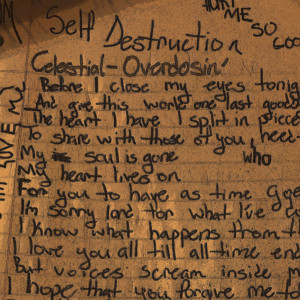 HURT
ME
SO
GOO
Self
Destruction
Celestial-Overdosin'
Before I close my eyes tonig
And give this world one last goodb
The heart I have I split in piece
To share with those of you, need
My soul is gone who
My heart lives on
For you to have as time goe
I'm sorry lord for what I've
I know what happens from th
I love you all till all time en
But voices scream inside m
I hope that you forgive me to
LOVE